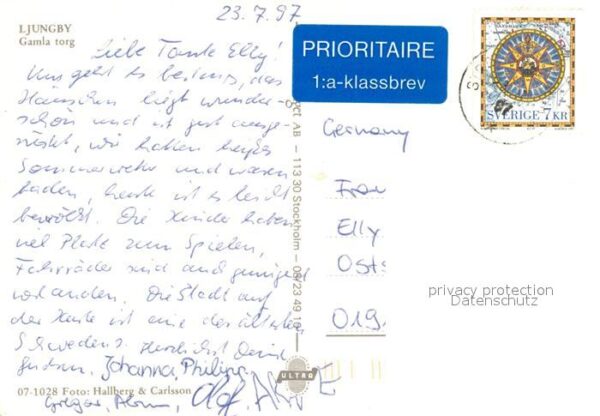 LJUNGBY
Gamla torg
23.7.97
Liebe Tante Elly!
Uns geht es bestens, das
Häuschen liegt wunder-
schön und ist gut ausge-
wir hatten
Sommerwetter und waren
baden, heute ist es leicht
bewölkt. Die Kinder haben
viel Platz zum Spielen,
Fahrräder sind auch genügend
vorhanden. Die Stadt auf
der Karte ist eine der ältesten
Schwedens. Herzlichst Deine
Gudrun, Johanna, Philipp,
Gregor,
07-1028 Foto: Hallberg & Carlsson
PRIORITAIRE
1:a-klassbrev
SVERIGE 7 KR
AB – 113 30 Stockholm – 08/23 49 10
ULTRA
Germany
Frau
Elly
Ost
019
privacy protection
Datenschutz